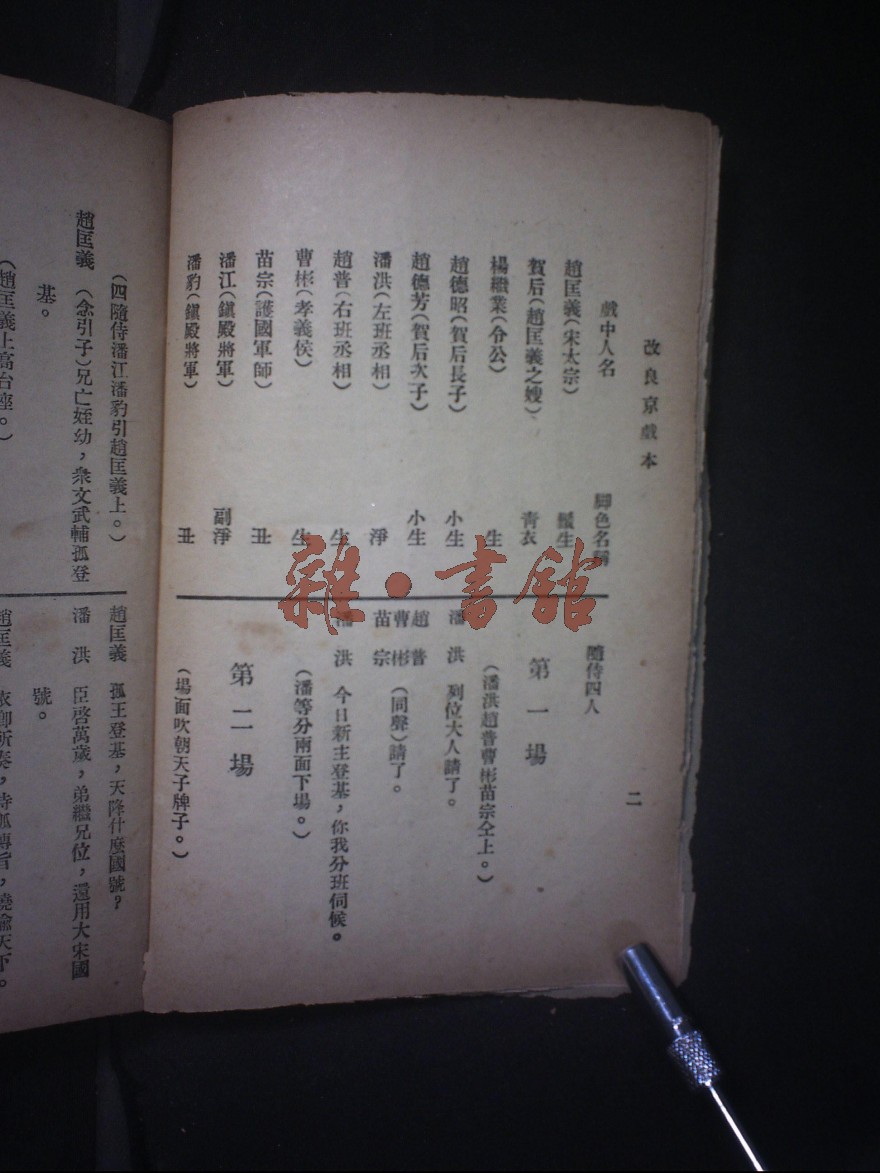 改良京戲本
二
戲中人名 脚色名稱
趙匡義(宋太宗) 鬚生
賀后(趙匡義之嫂) 青衣
楊繼業(令公) 生
趙德昭(賀后長子) 小生
趙德芳(賀后次子) 小生
潘洪(左班丞相) 淨
趙普(右班丞相) 生
曹彬(孝義侯) 生
苗宗(護國軍師) 丑
潘江(鎭殿將軍) 副淨
潘豹(鎭殿將軍) 丑
隨侍四人
第一場
(潘洪趙普曹彬苗宗仝上。)
潘洪 列位大人請了。
趙普
曹彬
苗宗 (同聲)請了。
潘洪 今日新主登基,你我分班伺候。
(潘等分兩面下場。)
第二場
(場面吹朝天子牌子。)
(四隨侍潘江潘豹引趙匡義上。)
趙匡義 (念引子)兄亡姪幼,衆文武輔孤登
基。
(趙匡義上高台座。)
趙匡義 孤王登基,天降什麼國號?
潘洪 臣啓萬歲,弟繼兄位,還用大宋國
號。
趙匡義 依卿所奏,待孤傳旨,曉諭天下。
雜·書館